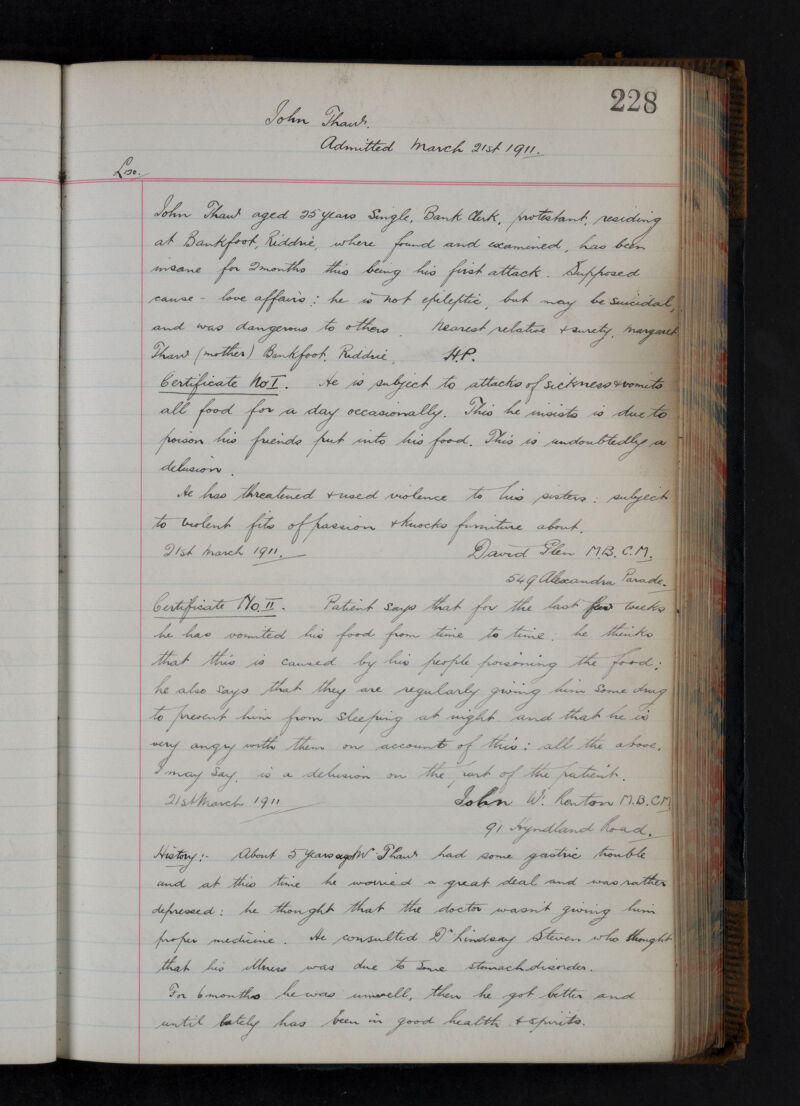 228
John Thaw.
Admitted March 21st 1911.
£120.
John Thaw aged 25 years Single, Bank Clerk, protestant, residing
at Bankfoot, Riddrie, where found and examined, has been
insane for 2 months this being his first attack. Supposed
cause - love affairs: he is not epileptic, but may be suicidal,
and was dangerous to others. Nearest relative & surety, Margaret
Thaw (mother) Bankfoot, Riddrie. H.P.
Certificate No I. He is subject to attacks of sickness & vomits
all food for a day occasionally. This he insists is due to
poison his friends put into his food. This is undoubtedly a
delusion.
He has threatened & used violence to his sisters: subject
to violent fits of passion & knocks furniture about.
21st March 1911. David Glen M.B. C.M.
549 Alexandra Parade.
Certificate No II. Patient says that for the last few weeks
he has vomited his food from time to time: he thinks
that this is caused by his people poisoning the food:
he also says that they are regularly giving him some drug
to prevent him from sleeping at night and that he is
very angry with them on account of this: all the above,
I may say, is a delusion on the part of the patient.
21st March 1911 John W. Renton M.B. CM
91 Hyndland Road.
History:- About 5 years ago Mr Thaw had some gastric trouble
and at this time he worried a great deal and was rather
depressed: he thought that the doctor wasn't giving him
proper medicine. He consulted Dr Lindsay Steven who thought
that his illness was due to some stomach disorder.
For 6 months he was unwell, then he got better and
until lately has been in good health & spirits.